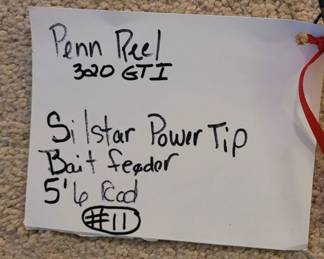 Penn Reel
320 GTI
Silstar Power Tip
Bait feeder
5'6 Rod
#11